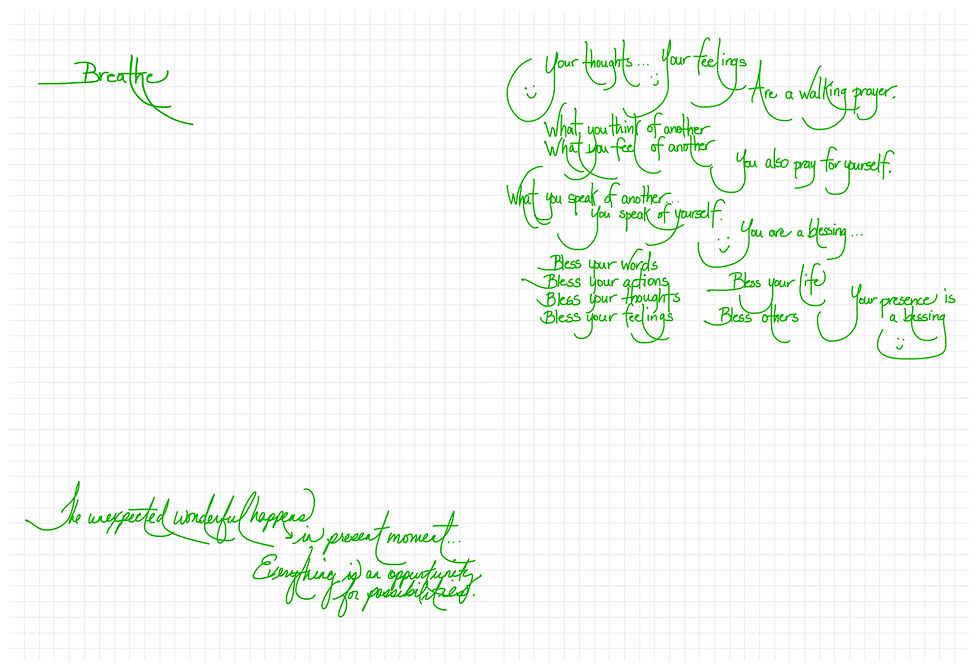 Breathe
Your thoughts... Your feelings
Are a walking prayer.
What you think of another
What you feel of another
You also pray for yourself.
What you speak of another...
You speak of yourself.
You are a blessing...
Bless your words
Bless your actions
Bless your thoughts
Bless your feelings
Bless your life
Bless others
Your presence is
a blessing
The unexpected wonderful happens
in present moment...
Everything is an opportunity
for possibilities.